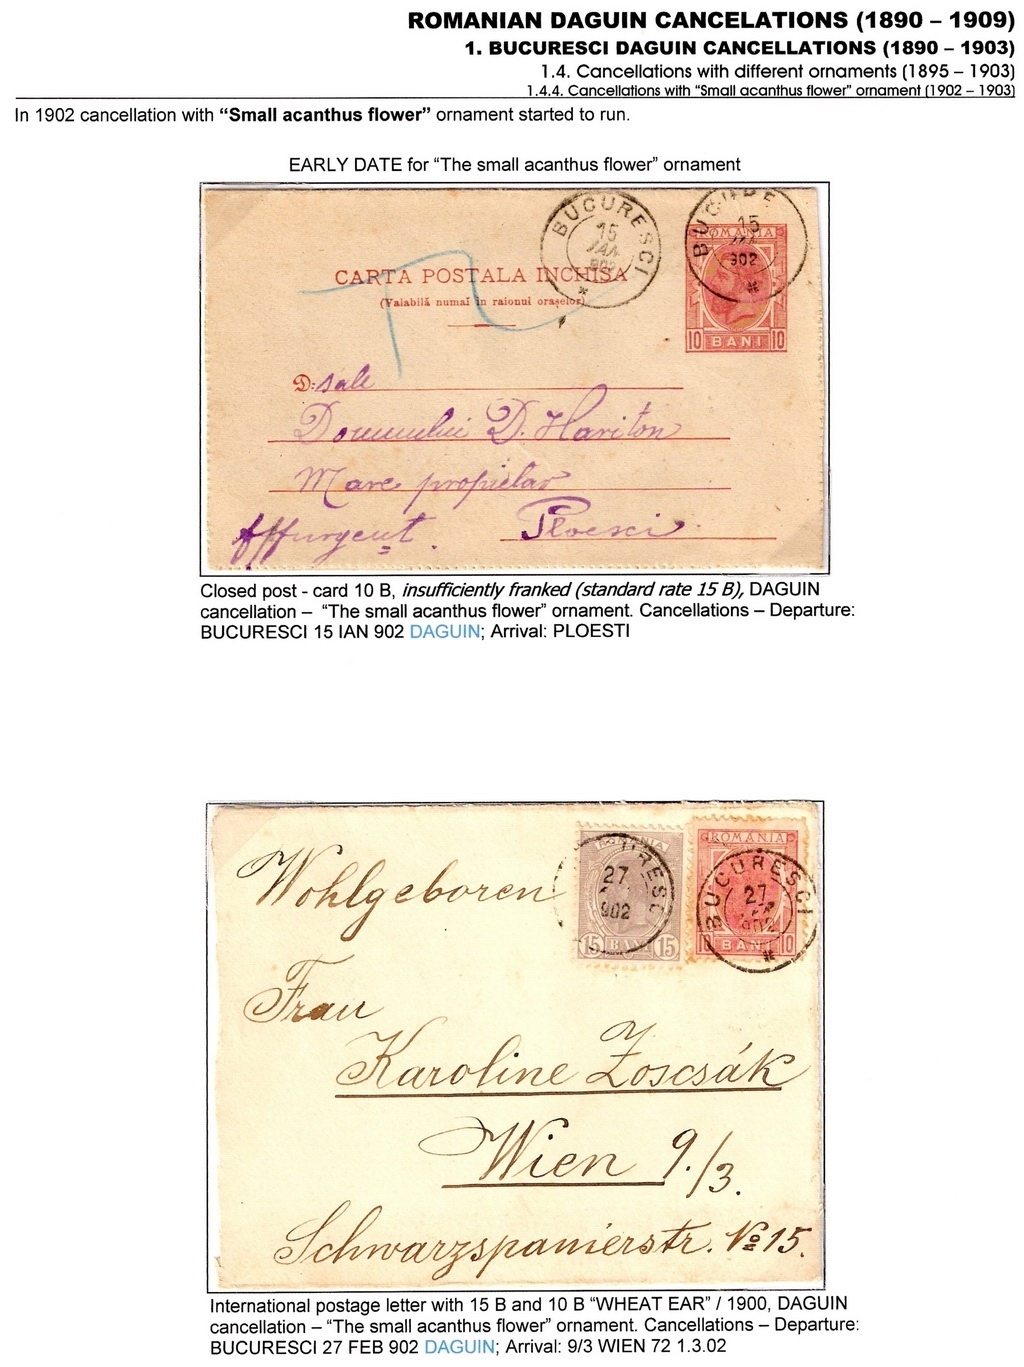 ROMANIAN DAGUIN CANCELATIONS (1890 – 1909)
1. BUCURESCI DAGUIN CANCELLATIONS (1890 – 1903)
1.4. Cancellations with different ornaments (1895 – 1903)
1.4.4. Cancellations with "Small acanthus flower" ornament (1902 – 1903)
In 1902 cancellation with “Small acanthus flower” ornament started to run.
EARLY DATE for “The small acanthus flower” ornament
BUCURESCI
15
IAN
902
BUCURE
15
IAN
902
ROMANIA
10 BANI 10
CARTA POSTALA INCHISA
(Valabilă numai in raionul oraşelor)
D:sale
Domnului D. Hariton
Mare propietar
Ploesci
Closed post - card 10 B, insufficiently franked (standard rate 15 B), DAGUIN
cancellation – “The small acanthus flower” ornament. Cancellations – Departure:
BUCURESCI 15 IAN 902 DAGUIN; Arrival: PLOESTI
ROMANIA
URESC
27
902
15 BANI 15
ROMANIA
BUCURESCI
27
FEB
902
10 BANI 10
Wohlgeboren
Frau
Karoline Zoscsák
Wien 9./3.
Schwarzspanierstr. No 15.
International postage letter with 15 B and 10 B “WHEAT EAR” / 1900, DAGUIN
cancellation – “The small acanthus flower” ornament. Cancellations – Departure:
BUCURESCI 27 FEB 902 DAGUIN; Arrival: 9/3 WIEN 72 1.3.02